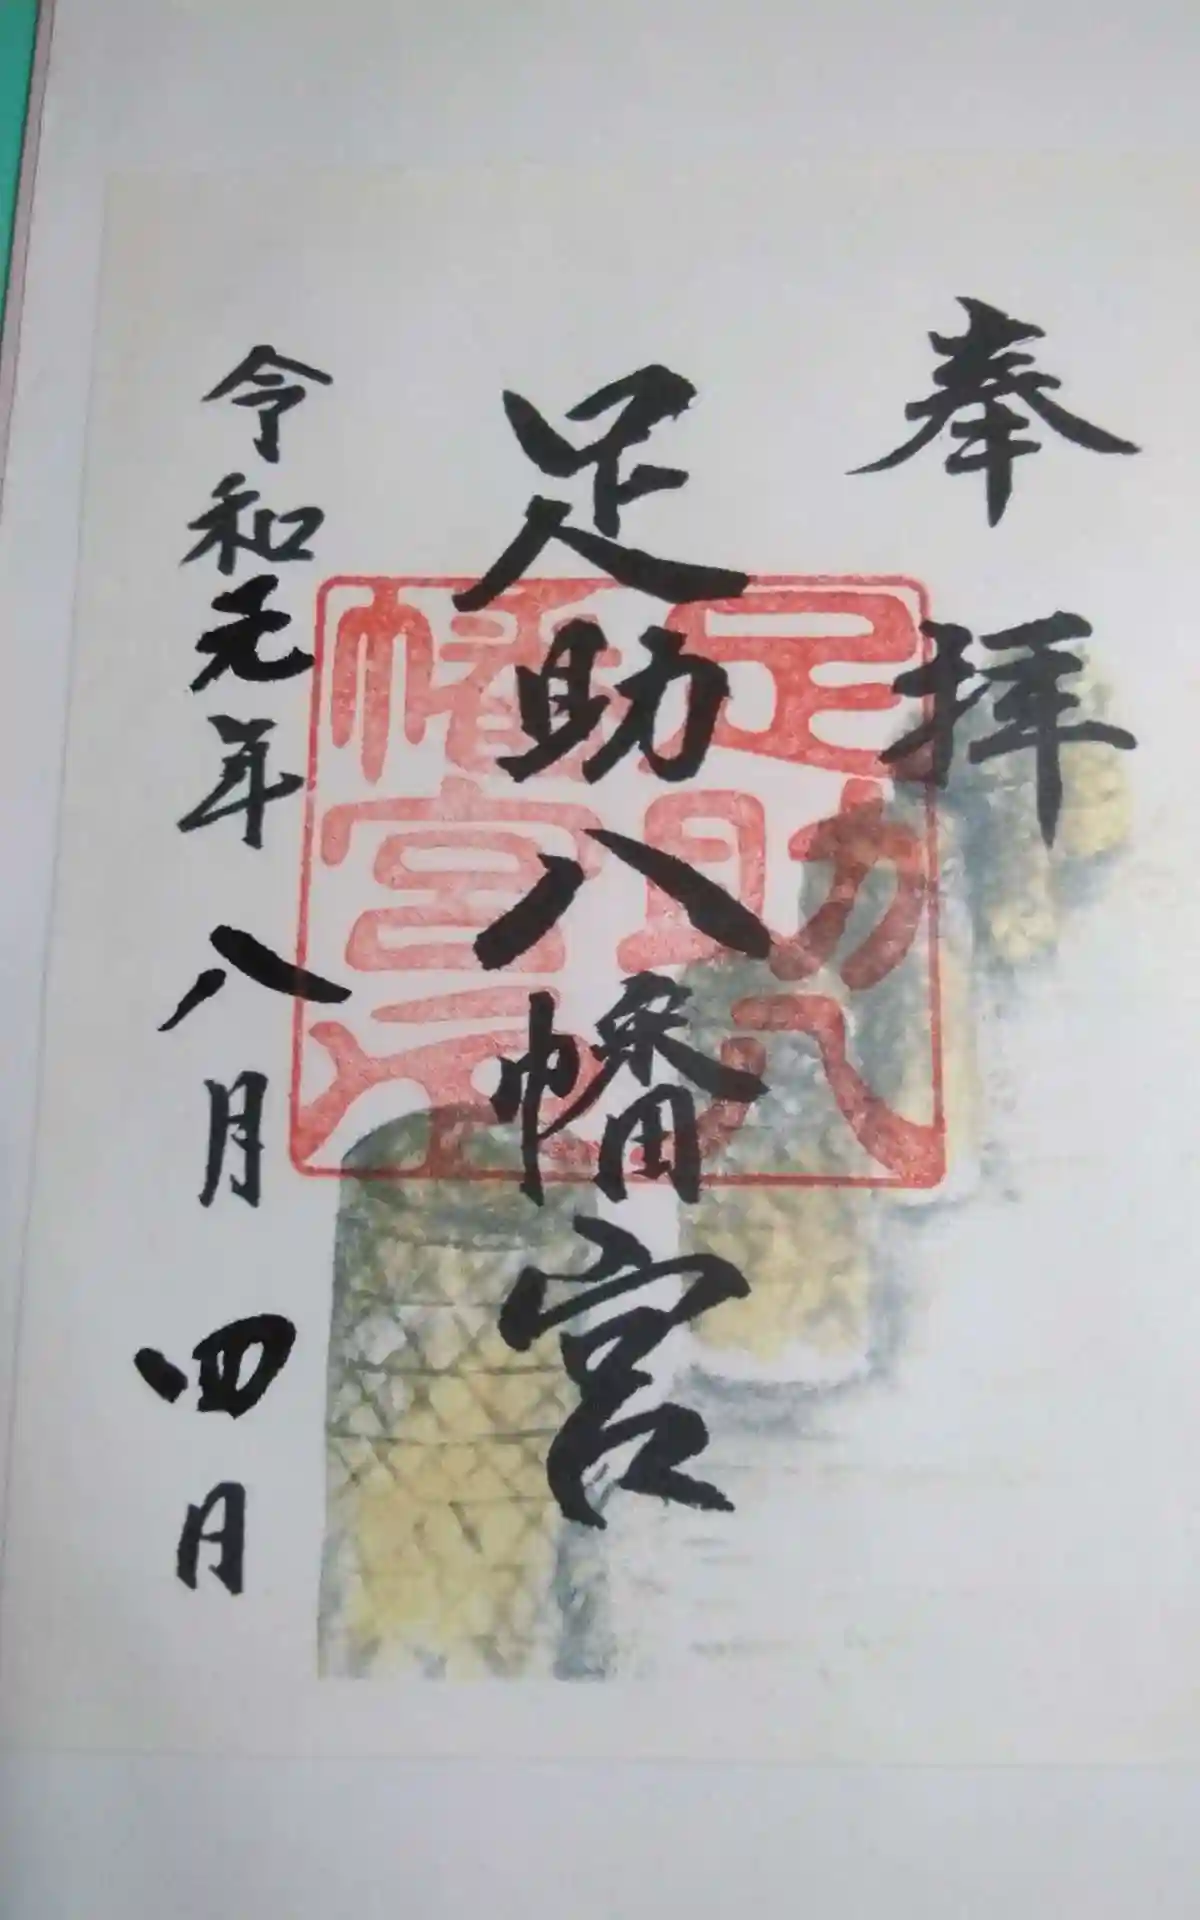 奉拝
足助八幡宮
足助八
幡宮印
令和元年八月四日